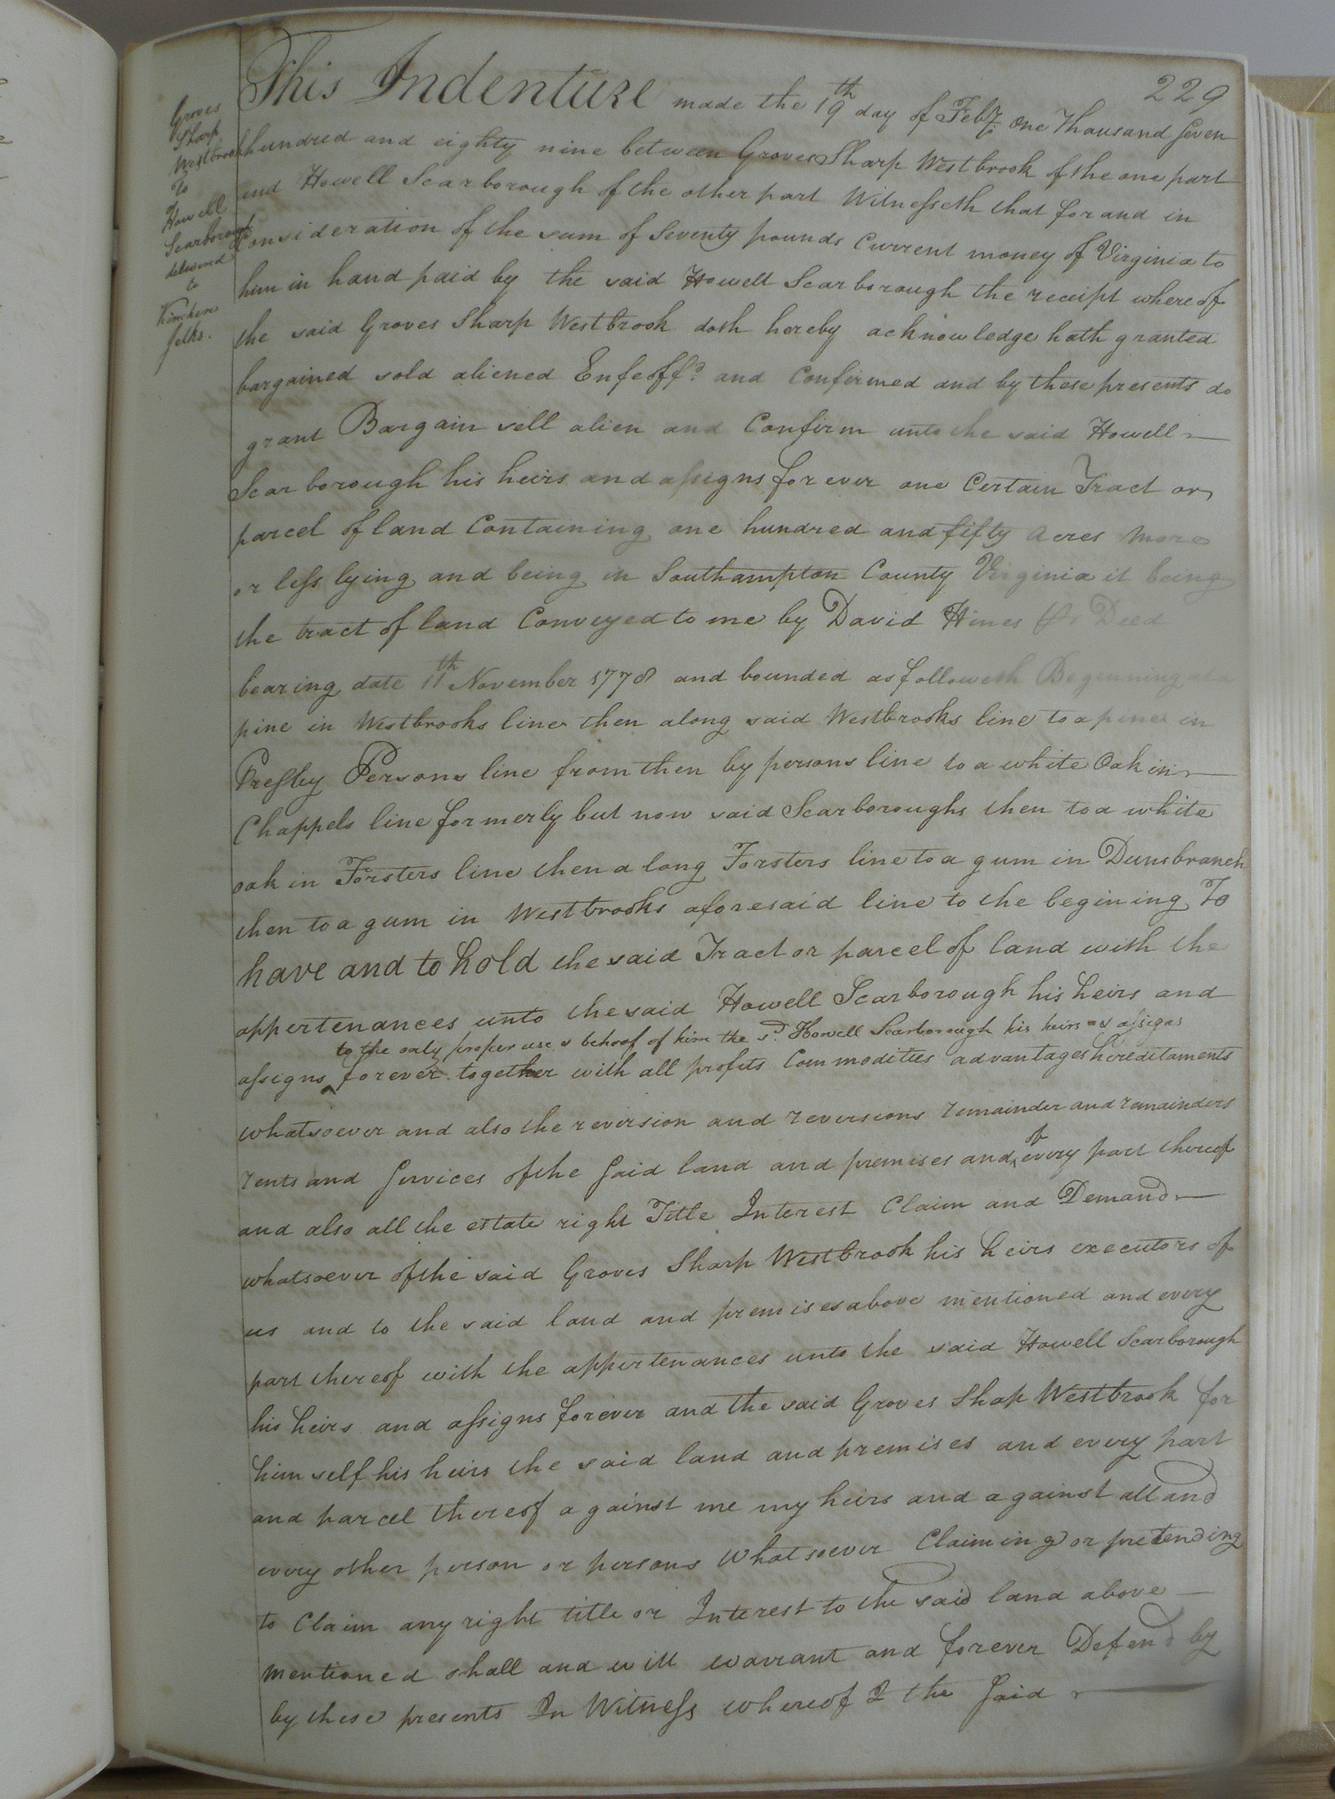 229
Groves
Sharp
Westbrook
To
Howell
Scarborough
delivered
to
Kinchen
felts.
This Indenture made the 19th day of Feby. One Thousand Seven
hundred and eighty nine between Groves Sharp Westbrook of the one part
and Howell Scarborough of the other part Witnesseth that for and in
Consideration of the sum of Seventy pounds Current money of Virginia to
him in hand paid by the said Howell Scarborough the receipt whereof
the said Groves Sharp Westbrook doth hereby acknowledge hath granted
bargained sold aliened Enfeoffd. and Confirmed and by these presents do
grant Bargain sell alien and Confirm unto the said Howell
Scarborough his heirs and assigns for ever one Certain Tract or
parcel of land Containing one hundred and fifty acres more
or less lying and being in Southampton County Virginia it being
the tract of land Conveyed to me by David Hines Deed
bearing date 11th November 1778 and bounded as followeth Beginning at a
pine in Westbrooks line then along said Westbrooks line to a pine in
Presley Persons line from then by persons line to a white Oak in
Chappels line formerly but now said Scarboroughs then to a white
oak in Forsters line then along Forsters line to a gum in Dunsbranch
then to a gum in Westbrooks aforesaid line to the begining To
have and to hold the said Tract or parcel of land with the
appertenances unto the said Howell Scarborough his heirs and
to the only proper use & behoof of him the sd. Howell Scarborough his heirs & assigns
assigns forever together with all profits Commodities advantages hereditaments
whatsoever and also the reversion and reversions remainder and remainders
rents and Services of the Said land and premises and of every part thereof
and also all the estate right Title Interest Claim and Demand
whatsoever of the said Groves Sharp Westbrook his heirs executors of
us and to the said land and premises above mentioned and every
part thereof with the appertenances unto the said Howell Scarborough
his heirs and assigns forever and the said Groves Shap Westbrook for
him self his heirs the said land and premises and every part
and parcel thereof against me my heirs and against all and
every other person or persons Whatsoever Claiming or pretending
to Claim any right title or Interest to the said land above
mentioned shall and will warrant and forever Defend by
by these presents In Witness whereof I the Said